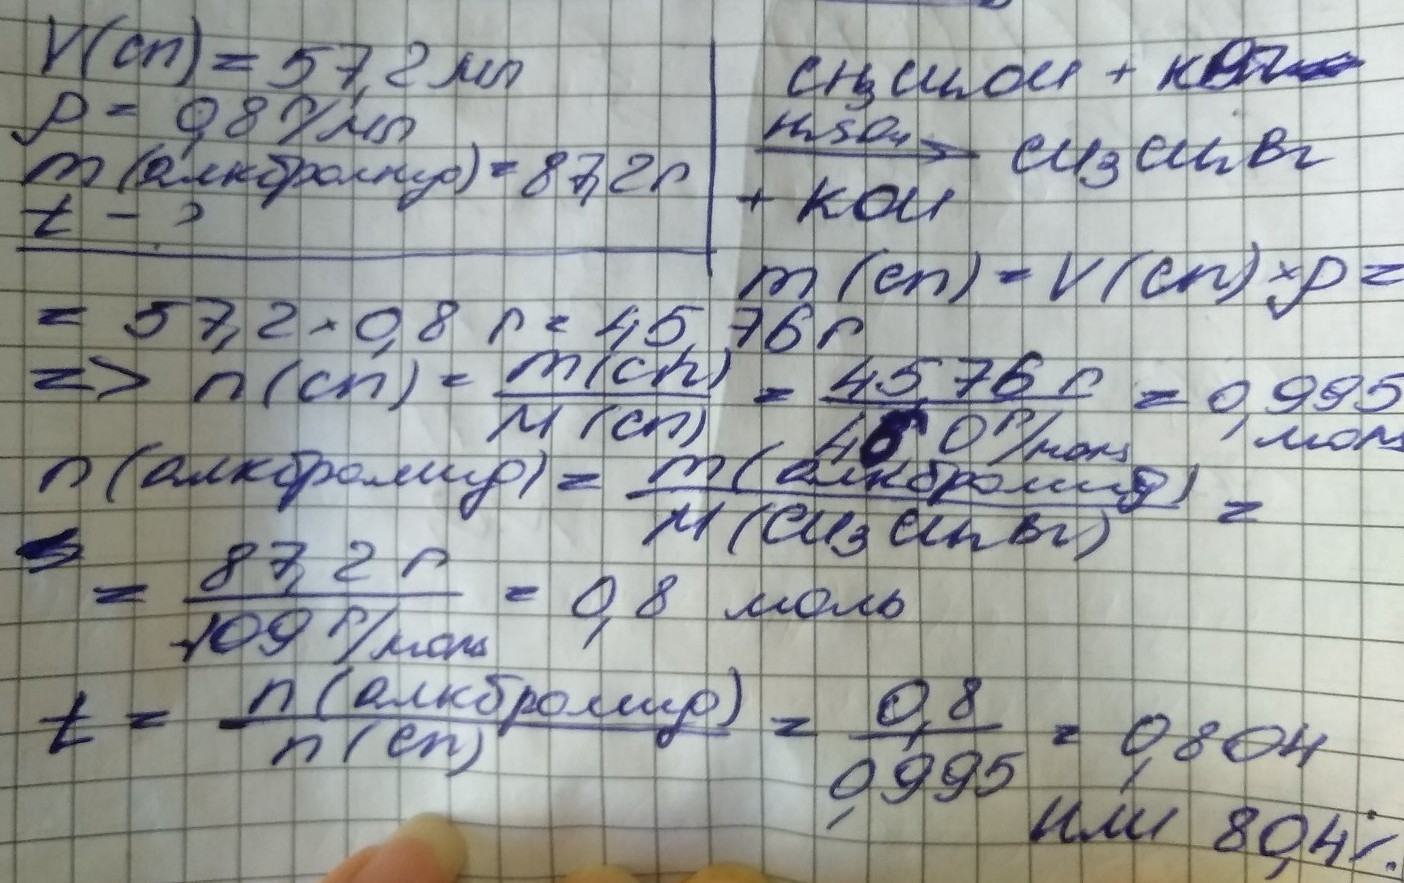 V(сп) = 57,2 мл
ρ = 0,8 г/мл
m (алкбромид) = 87,2 г
t - ?
CH3CH2OH + KBr
H2SO4 → CH3CH2Br
+ KOH
m (сп) = V (сп) × ρ =
= 57,2 × 0,8 г = 45,76 г
=> n (сп) = m(сп) / M (сп) = 45,76 г / 46,0 г/моль = 0,995 моль
n (алкбромид) = m (алкбромид) / M (CH3CH2Br) =
= 87,2 г / 109 г/моль = 0,8 моль
t = n (алкбромид) / n (сп) = 0,8 / 0,995 = 0,804
или 80,4%.